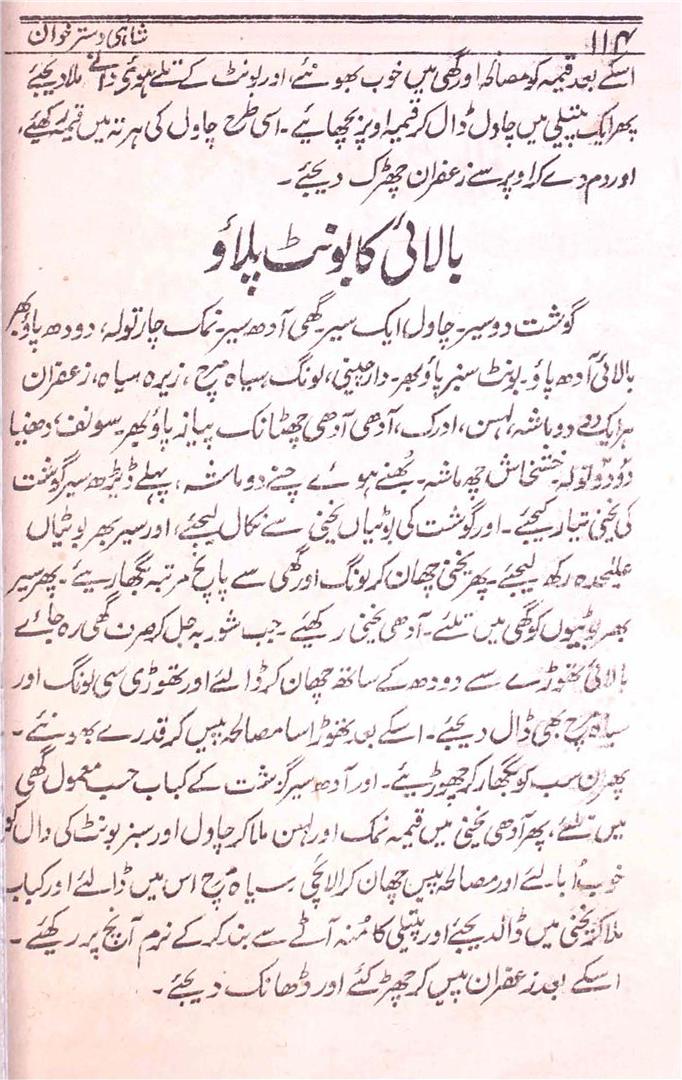 ۱۱۴ شاہی دسترخوان
اسکے بعد قیمہ کو مصالحہ اور گھی میں خوب بھونئے، اور بونٹ کے تلے ہوئی دانے ملا دیجئے
پھر ایک پتیلی میں چاول ڈال کر قیمہ اوپر بچھائیے۔ اسی طرح چاول کی ہر تہ میں قیمہ رکھیئے،
اور دم دے کر اوپر سے زعفران چھڑک دیجئے۔
بالائی کا بونٹ پلاؤ
گوشت دو سیر۔ چاول ایک سیر۔ گھی آدھ سیر۔ نمک چار تولہ، دودھ پاؤ بھر
بالائی آدھ پاؤ۔ بونٹ سبز پاؤ بھر۔ دارچینی، لونگ سیاہ مرچ، زیرہ سیاہ، زعفران
ہر ایک دو ماشہ، لہسن، ادرک، آدھی آدھی چھٹانک پیاز پاؤ بھر۔ سونف، دھنیا
دو دو تولہ۔ خشخاش چھ ماشہ۔ بُھنے ہوے چنے دو ماشہ، پہلے ڈیڑھ سیر گوشت
کی یخنی تیار کیجئے۔ اور گوشت کی بوٹیاں یخنی سے نکال لیجئے، اور سیر بھر بوٹیاں
علیٰحدہ رکھ لیجئے۔ پھر یخنی چھان کر لونگ اور گھی سے پانچ مرتبہ بگھاریئے۔ پھر سیر
بھر بوٹیوں کو گھی میں تلئے۔ آدھی یخنی رکھیئے۔ جب شوربہ جل کر صرف گھی رہ جاے
بالائی تھوڑے سے دودھ کے ساتھ چھان کر ڈالئے اور تھوڑی سی لونگ اور
سیاہ مرچ بھی ڈال دیجئے۔ اسکے بعد تھوڑا سا مصالحہ پیس کر قدرے بھونئے۔
پھر ان سب کو بگھار کر چھوڑیئے۔ اور آدھ سیر گوشت کے کباب حسب معمول گھی
میں تلئے، پھر آدھی یخنی میں قیمہ نمک اور لہسن ملا کر چاول اور سبز بونٹ کی دال کو
خوب اُبالئے اور مصالحہ پیس چھان کر الائچی سیاہ مرچ اس میں ڈالئے اور کباب
ملا کر یخنی میں ڈالدیجئے اور پتیلی کا مُنہ آٹے سے بند کر کے نرم آنچ پر رکھیئے۔
اسکے بعد زعفران پیس کر چھڑکئے اور ڈھانک دیجئے۔